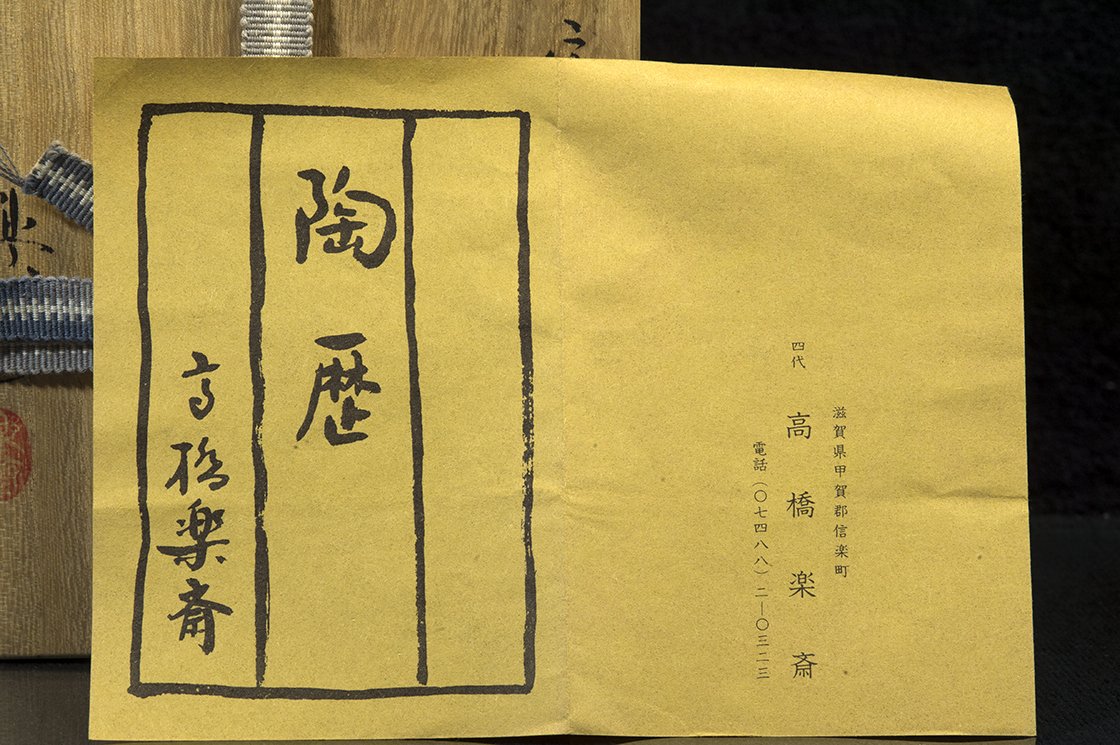 陶歴
高橋楽斎
滋賀県甲賀郡信楽町
四代 高橋楽斎
電話(〇七四八八)二―〇三二三